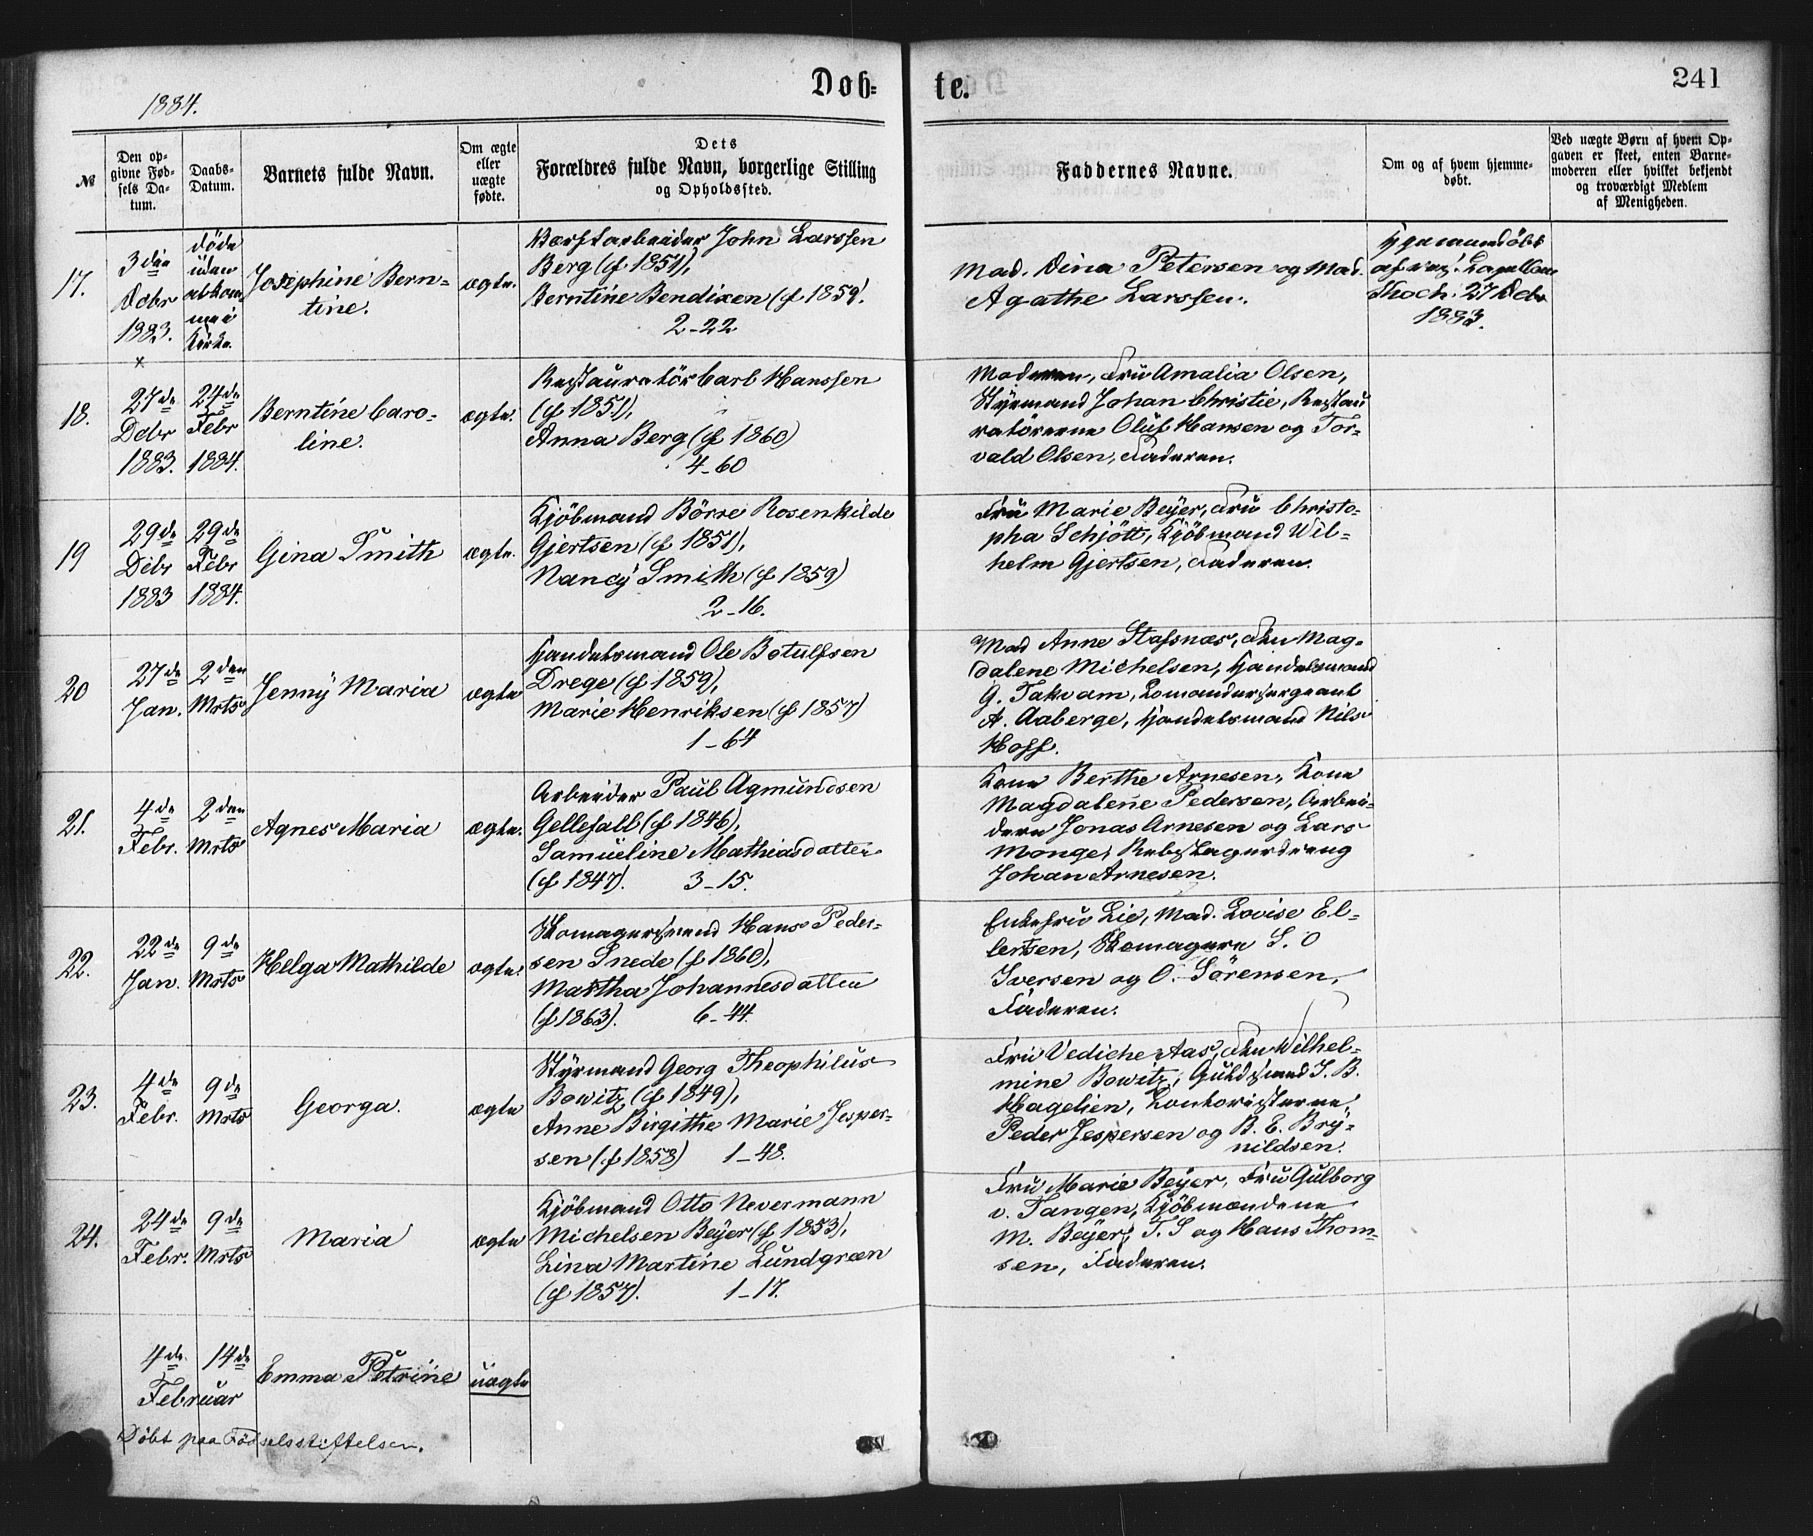 1884.
Døb=
te.
241
№
Den op-
givne Fød-
sels Da-
tum.
Daabs-
Datum.
Barnets fulde Navn.
Om ægte
eller
uægte
fødte.
Dets
Forældres fulde Navn, borgerlige Stilling
og Opholdssted.
Faddernes Navne.
Om og af hvem hjemme-
døbt.
Ved uægte Børn af hvem Op-
gaven er skeet, enten Barne-
moderen eller hvilket bekjendt
og troværdigt Medlem
af Menigheden.
17.
3die
Dcbr
1883.
døde
uden
at kom
me i
Kirke.
Josephine Bern-
tine.
ægte.
Værftsarbeider John Larssen
Berg (f 1851),
Berntine Bendixen (f 1859).
2-22
Mad. Dina Petersen og Mad.
Agathe Larssen.
Hjemmedøbt
af res. Capellan
Koch. 27 Dcbr
1883.
18.
27de
Dcbr
1883.
24de
Febr
1884.
Berntine Caro-
line.
ægte.
Restauratör Carl Hanssen
(f 1851),
Anna Berg (f 1860)
4-60
Moderen, Fru Amalia Olsen,
Styrmand Johan Christie, Restau
ratörerne Oluf Hansen og Tor-
vald Olsen, Faderen.
19
29de
Dcbr
1883
29de
Febr
1884.
Gina Smith
ægte.
Kjöbmand Börre Rosenkilde
Gjertsen (f 1851),
Nancy Smith (f 1859)
2-16.
Fru Marie Beyer, Fru Christo-
pha Schjött, Kjöbmand Wil-
helm Gjertsen, Faderen.
20
27de
Jan.
2den
Mrts
Jenny Maria
ægte
Handelsmand Ole Botulfsen
Drege (f 1859),
Marie Henriksen (f 1857)
1-64
Mad Anne Stafsnæs, Fru Mag-
dalene Michelsen, Handelsmand
G. Takvam, Comandersergeant
A. Aaberge, Handelsmand Nils
Hoff.
21.
4de
Febr.
2den
Mrts
Agnes Maria
ægte.
Arbeider Paul Agmundsen
Gellefall (f 1846),
Samueline Mathiasdatter
(f 1847). 3-15.
Kone Berthe Arnesen, Kone
Magdalene Pedersen, Arbei-
dere Jonas Arnesen og Lars
Monge, Rebslagerdreng
Johan Arnesen.
22.
22de
Jan.
9de
Mrts
Helga Mathilde
ægte.
Skomagersvend Hans Peder-
sen Snede (f 1860),
Martha Johannesdatter
(f 1863). 6-44.
Enkefru Lie, Mad. Lovise El-
lertsen, Skomagere S. O
Iversen og O. Sörensen,
Faderen.
23.
4de
Febr.
9de
Mrts
Georga.
ægte
Styrmand Georg Theophilus
Bowitz (f 1849),
Anne Birgithe Marie Jesper-
sen (f 1858) 1-48.
Fru Vediche Aas, Fru Wilhel-
mine Bowitz, Guldsmed I. B.
Hagelien, Contoristerne
Peder Jespersen og B. E. Bry-
nildsen.
24.
24de
Febr.
9de
Mrts
Maria
ægte
Kjöbmand Otto Nevermann
Michelsen Beyer (f 1853),
Lina Martine Lundgreen
(f 1857). 1-17.
Fru Marie Beyer, Fru Gulborg
v. Tangen, Kjöbmændene
M. Beyer, T. S og Hans Thom-
sen, Faderen.
4de 14de
Februar
Emma Petrine
uægte
Döbt paa Födselsstiftelsen.